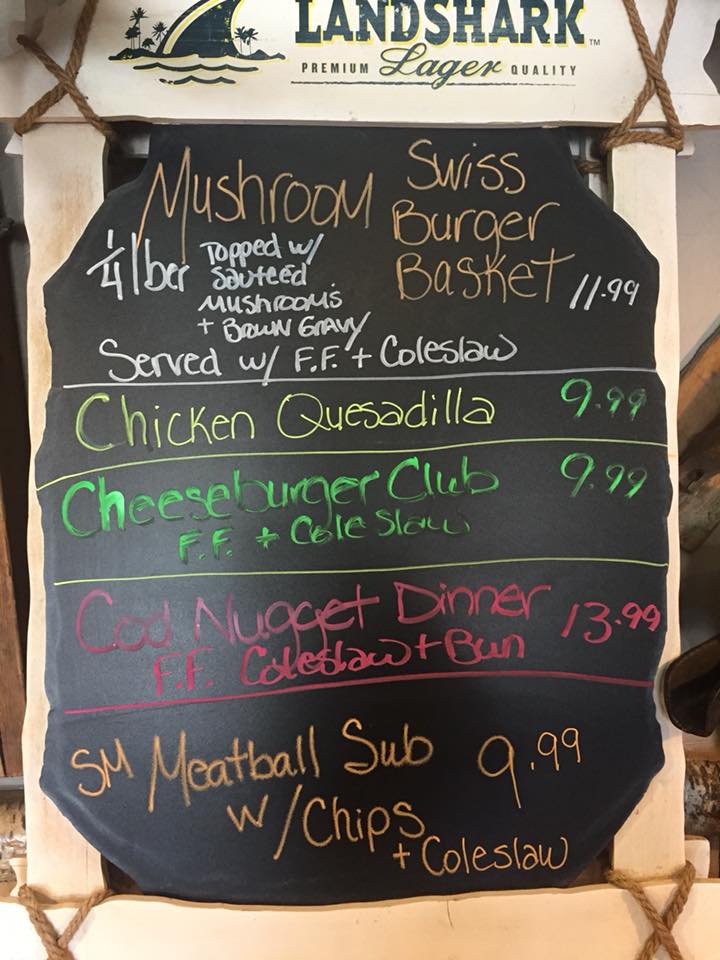 LANDSHARK™
PREMIUM Lager QUALITY
Mushroom Swiss
Burger
Basket 11.99
1/4 lber Topped w/
Sauteed
Mushrooms
+ Brown Gravy
Served w/ F.F. + Coleslaw
Chicken Quesadilla 9.99
Cheeseburger Club 9.99
F.F. + Cole Slaw
Cod Nugget Dinner 13.99
F.F. Coleslaw + Bun
SM Meatball Sub 9.99
w/ Chips
+ Coleslaw